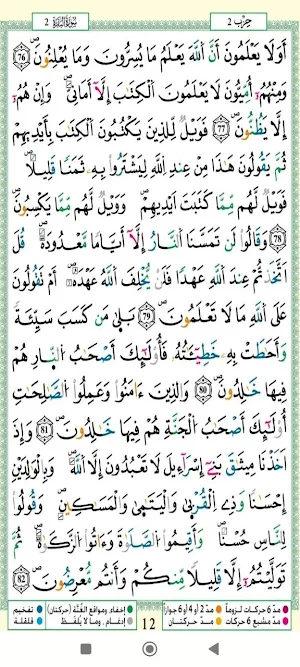 حزب 2 سورة البقرة 2
أَوَلَا يَعْلَمُونَ أَنَّ اَللَّهَ يَعْلَمُ مَا يُسِرُّونَ وَمَا يُعْلِنُونَۖ 76
وَمِنْهُمُۥٓ أُمِّيُّونَ لَا يَعْلَمُونَ اَلْكِتَٰبَ إِلَّآ أَمَانِيَّۖ وَإِنْ هُمُۥٓ
إِلَّا يَظُنُّونَۖ 77 فَوَيْلٌ لِّلذِينَ يَكْتُبُونَ اَلْكِتَٰبَ بِأَيْدِيهِمْ
ثُمَّ يَقُولُونَ هَٰذَا مِنْ عِندِ اِللَّهِ لِيَشْتَرُواْ بِهِۦ ثَمَناٗ قَلِيلاٗۖ
فَوَيْلٌ لَّهُم مِّمَّا كَتَبَتَ اَيْدِيهِمْۖ وَوَيْلٌ لَّهُم مِّمَّا يَكْسِبُونَۖ
78 وَقَالُواْ لَن تَمَسَّنَا اَلنَّارُ إِلَّآ أَيَّاماٗ مَّعْدُودَةٗۖ قُلَ
اَتَّخَذتُّمْ عِندَ اَللَّهِ عَهْداٗ فَلَنْ يُّخْلِفَ اَللَّهُ عَهْدَهُۥٓۖ أَمْ تَقُولُونَ
عَلَى اَللَّهِ مَا لَا تَعْلَمُونَۖ 79 بَلَىٰ مَن كَسَبَ سَيِّئَةٗ
وَأَحَٰطَتْ بِهِۦ خَطِيٓـَٰٔتُهُۥ فَأُوْلَٰٓئِكَ أَصْحَٰبُ اُلنَّارِ هُمْ
فِيهَا خَٰلِدُونَۖ 80 وَالذِينَ ءَامَنُواْ وَعَمِلُواْ اُلصَّٰلِحَٰتِ
أُوْلَٰٓئِكَ أَصْحَٰبُ اُلْجَنَّةِ هُمْ فِيهَا خَٰلِدُونَۖ 81 وَإِذَ
اَخَذْنَا مِيثَٰقَ بَنِےٓ إِسْرَآءِيلَ لَا تَعْبُدُونَ إِلَّا اَللَّهَۖ وَبِالْوَٰلِدَيْنِ
إِحْسَاناٗ وَذِے اِلْقُرْبَىٰ وَالْيَتَٰمَىٰ وَالْمَسَٰكِينِۖ وَقُولُواْ
لِلنَّاسِ حُسْناٗۖ وَأَقِيمُواْ اُلصَّلَوٰةَ وَءَاتُواْ اُلزَّكَوٰةَۖ ثُمَّ
تَوَلَّيْتُمُۥٓ إِلَّا قَلِيلاٗ مِّنكُمْ وَأَنتُم مُّعْرِضُونَۖ 82
مدّ 6 حركات لزوماً مدّ 2 أو 4 أو 6 جوازاً إخفاء، ومواقع الغُنَّة (حركتان) تفخيم
مدّ مشبع 6 حركات مدّ حركتان 12 إدغام، وما لا يُلفَظ قلقلة